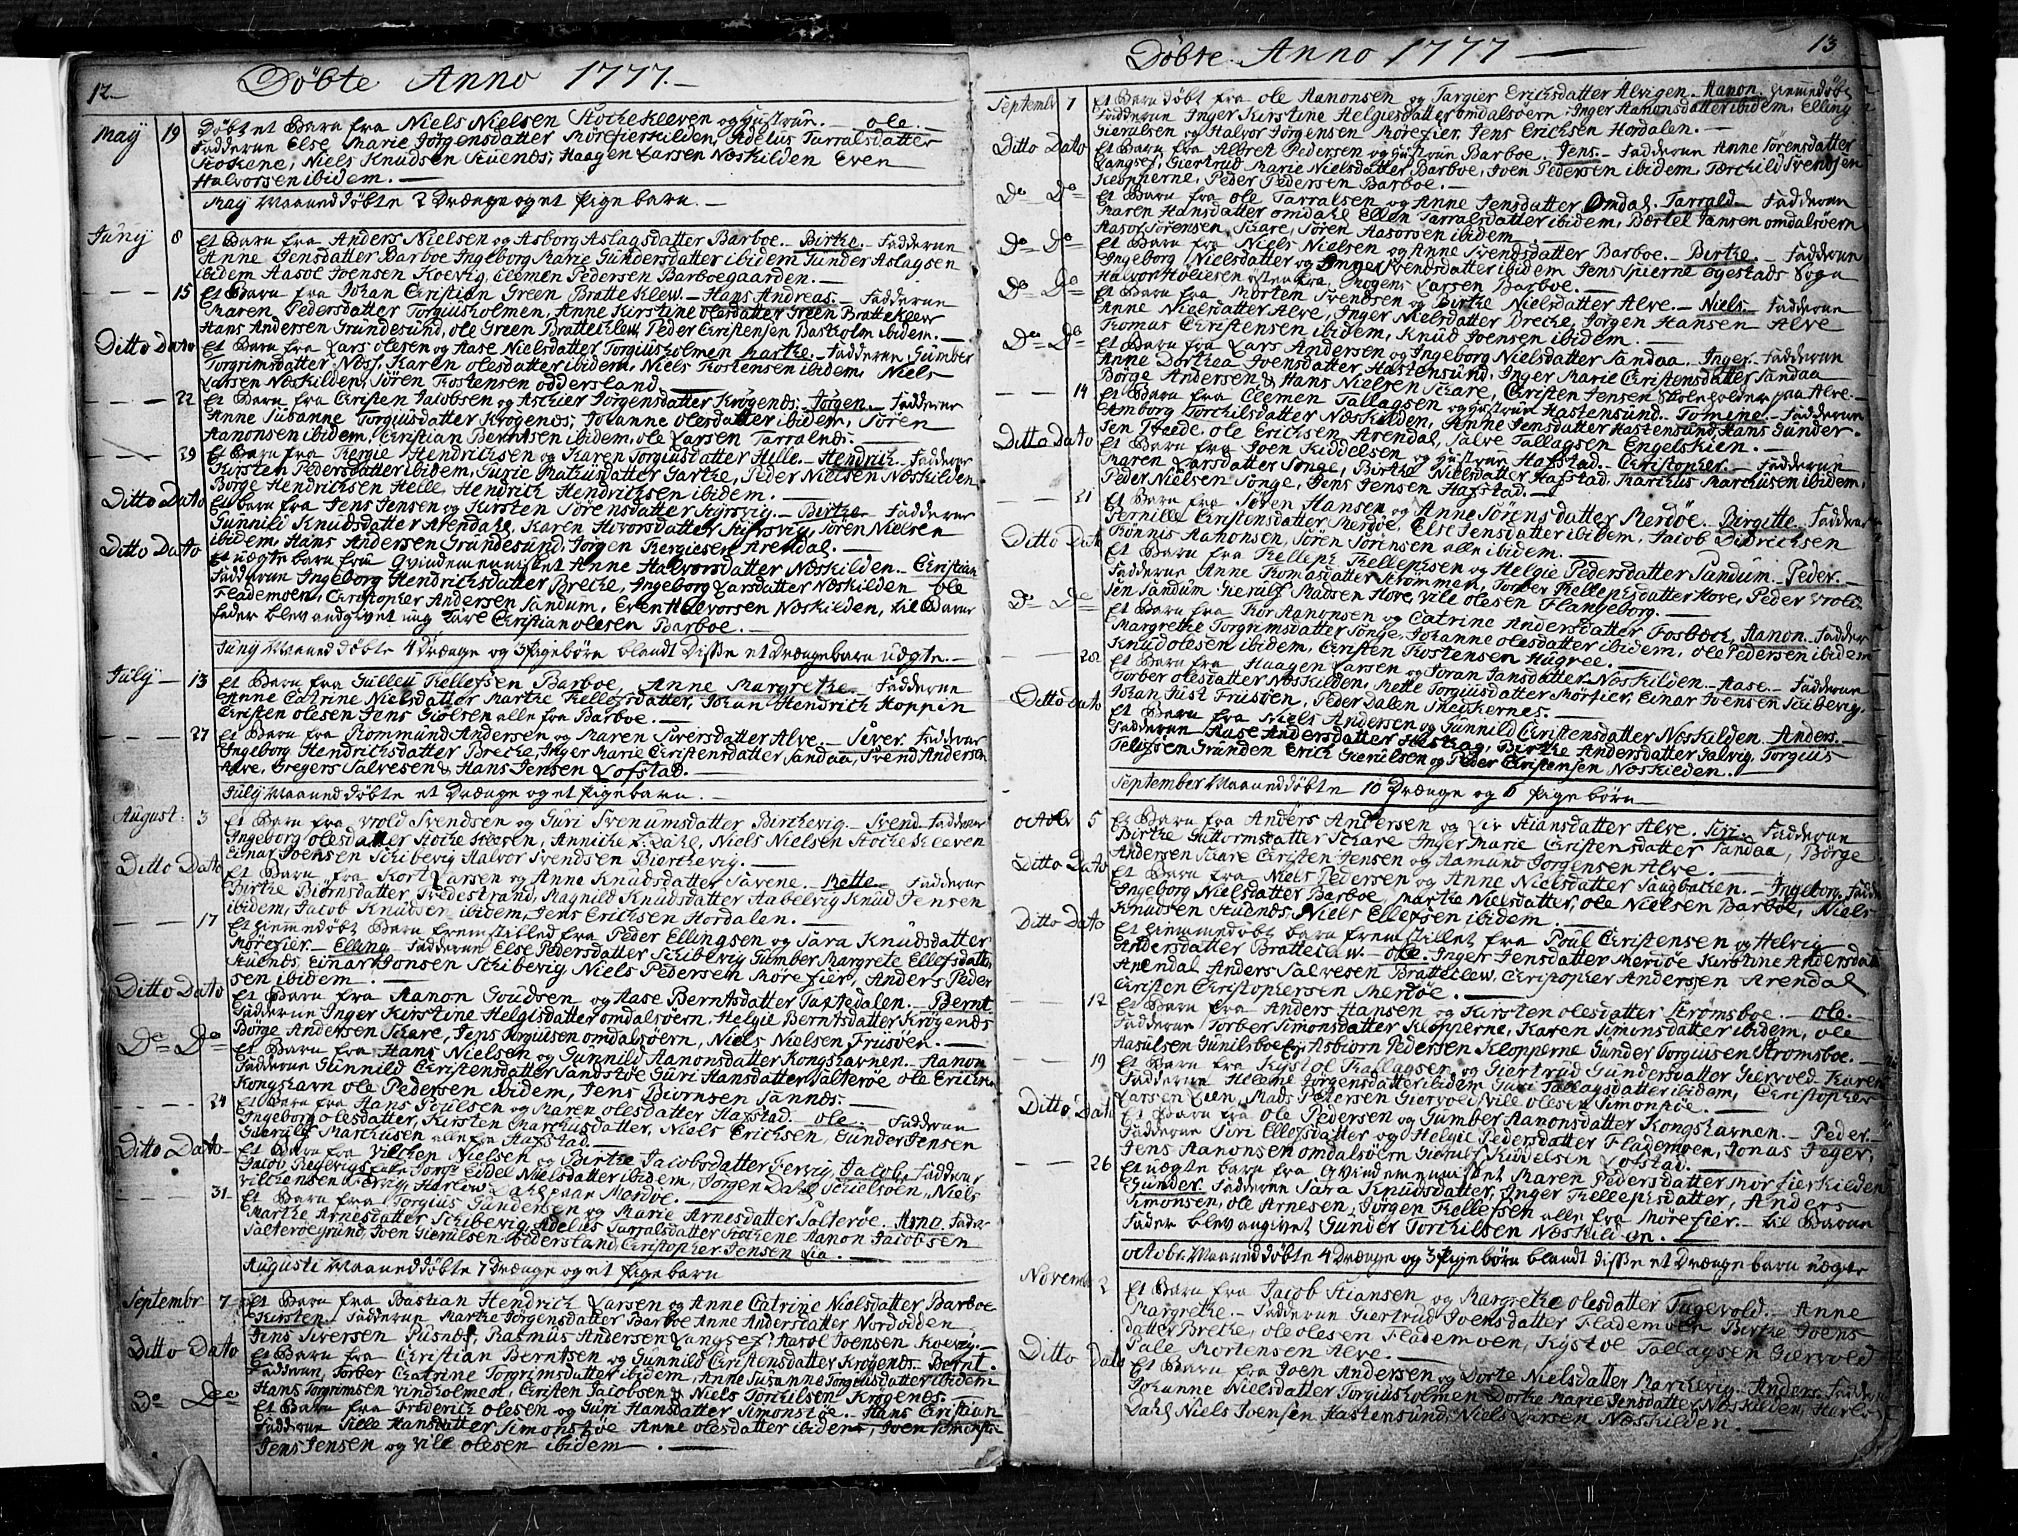 12.
Döbte Anno 1777.
Maÿ 19 Döbt et Barn fra Niels Nielsen Stöchekleven og Hustrue. ole.
Fadderne Else Marie Jörgensdatter Mörefierskilden, Adelus Tarralsdatter
Stokene, Niels Knudsen Stuenes, Haagen Larsen Næskilden Even
Halvorsen ibidem.
Maÿ Maaned döbte 2 Drænge og et Pigebarn.
Junÿ 8 Et Barn fra Anders Nielsen og Asborg Aslagsdatter Barboe. Birthe. Fadderne
Anne Jensdatter Barboe Ingeborg Marie Gundersdatter ibidem Gunder Aslagsen
ibidem Aasol Joensen Koevig, Clemen Pedersen Barboegaarden.
15 Et Barn fra Johan Christian Green Bratteklew. Hans Andreas. Fadderne
Maren Pedersdatter Torgiusholmen, Anne Kirstine olesdatter Green Bratteklew
Hans Andersen Grundesund, ole Green Bratteklew, Peder Christensen Baskolm ibidem.
Ditto Dato Et Barn fra Lars olesen og Aase Nielsdatter Torgiusholmen Marthe. Fadderne Gumber
Torgrimsdatter Næs, Karen olesdatter ibidem, Niels Tostensen ibidem, Niels
Larsen Næskilden, Sören Tostensen oddersland
22 Et Barn fra Christen Jacobsen og Aschier Jörgensdatter Krögenes Jörgen. Fadderne
Anne Susanne Torgiusdatter Krögenes, Johanne olesdatter ibidem, Sören
Aanonsen ibidem, Christian Berntsen ibidem, ole Larsen Tarralnes.
29 Et Barn fra Tergie Hendrichsen og Karen Torgiusdatter Helle. Hendrich. Fadderne
Kirsten Pedersdatter ibidem, Gurie Mathiusdatter Garthe, Peder Nielsen Næskilden
Börge Hendrichsen Helle, Hendrich Hendrichsen ibidem.
Ditto Dato Et barn fra Jens Jensen og Kirsten Sörensdatter Songsvig. Birthe Fadderne
Gunnild Knudsdatter Arendahl, Karen Hovorsdatter Songsvig, Sören Nielsen
ibidem, Hans Andersen Grundesund, Jörgen Tergiesen Arendal.
Ditto Dato Et uægte barn fra Qvindemennistet Anne Halvorsdatter Næskilden. Christian
Fadderne Ingeborg Hendrichsdatter Breche, Ingeborg Larsdatter Næskilden ole
Flademoen, Christopher Andersen Sandum, Even Halvorsen Næskilden, til Barne
fader blev angivet ung Karl Christian olesen Barboe.
Junÿ Maaned döbte 4 Drænge og 3 Pigebörn blandt Disse et Drængebarn uægte.
Julÿ 13 Et Barn fra Gullew Kellefsen Barboe. Anne Margrethe. Fadderne
Anne Catrine Nielsdatter Marthe Kellefsdatter, Johan Hendrich Hoppin
Christen olesen Jens Giölsen alle fra Barboe.
27 Et Barn fra Tommund Andersen og Maren Siversdatter Alve. Siver Fadderne
Ingeborg Hendrichsdatter Breche, Inger Marie Christensdatter Sandaa, Svend Andersen
Alve, Gregers Salvesen & Hans Jensen Lofstad.
Julÿ Maaned döbte et Drænge og et Pigebarn.
August 3 Et Barn fra Vrold Svendsen og Guri Svenumsdatter Birchevig Svend. Fadderne
Ingeborg olesdatter Stoche kleven, Anniche L. Dahl, Niels Nielsen Stöchekleven
Einar Joensen Skibevig Halvor Svendsen Bierchevig.
Ditto Dato Et Barn fra Kort Larsen og Anne Knudsdatter Savene. Mette. Fadderne
Birthe Biörnsdatter Tvedestrand, Magnild Knudsdatter Aabelvig Knud Jensen
ibidem, Jacob Knudsen ibidem, Jens Erichsen Hordalen.
17 Et hiemedöbt Barn fremstilled fra Peder Ellingsen og Sara Knudsdatter
Mörefier. Elling Fadderne Else Pedersdatter Skibevig Gumber Margrete Ellefsdatter
Stuenes, Einar Jonsen Skibevig Niels Pedersen Mörefier, Anders Peder
sen ibidem.
Ditto Dato Et Barn fra Aanon Goudsen og Aase Berntsdatter Taxtedalen. Bernt
Fadderne Inger Kirstine Helgesdatter omdalsöern. Helgie Berntsdatter Krögenes
Börge Andersen Skare, Jens Torgiusen omdalsöern, Niels Nielsen Friisöen.
Do Do Et Barn fra Hans Nielsen og Gunnild Aanonsdatter Kongshavnen. Aanon
Fadderne Gunnild Christensdatter Sandstöe Guri Hansdatter Salteröe ole Erichsen
Kongshavn ole Pedersen ibidem, Jens Biörnsen Sannes.
24 Et Barn fra Hans Poulsen og Maren olesdatter Hafstad. ole. Fadderne
Ingeborg olesdatter, Kirsten Marchusdatter, Niels Erichsen, Gunder Jensen
Gierulf Marchusen alle fra Hafstad.
Ditto Dato Et Barn fra Vilchen Nielsen og Birthe Jacobsdatter Fervig. Jacob. Fadderne
Eidel Nielsdatter ibidem, Jörgen Dahl, Niels
Vilchensen Fervig, Harlow Dahl paa Merdöe.
31 Et Barn fra Torgius Gundersen og Marie Arnesdatter Salteröe. Arno. Fadde
Marthe Arnesdatter Skibevig Adelus Tarralsdatter Stochene Aanon Jacobsen
Salteröegrund, Joen Gierulsen odersland, Christopher Jensen Lia.
Augusti Maaned döbte 7 Drænge og et Pigebarn
Septembr 7 Et Barn fra Bastian Hendrich Larsen og Anne Catrine Nielsdatter Barboe
Kirsten. Fadderne Marthe Jörgensdatter Barboe Anne Andersdatter Nordodden
Jens Siversen Pusnes, Rasmus Andersen Langsef, Aasol Joensen Koevig.
Ditto Dato Et Barn fra Christian Berntsen og Gunnild Christensdatter Krögenes. Bernt.
Fadderne, Torber Catrine Torgrimsdatter ibidem, Anne Susanne Torgiusdatter ibidem
Hans Torgrimsen vindholmen, Christen Jacobsen & Niels Torchilsen Krögenes.
Do Do Et Barn fra Frederich olesen og Guri Hansdatter Simonstöe. Hans Christian
Fadderne Sille Hansdatter Simonstöe Anne olesdatter ibidem, Joen Simonstöe
Jens Jensen og Vile olesen ibidem.
Döbte Anno 1777
13
Septembr 7 Et Barn döbt fra ole Aanonsen og Targier Erichsdatter Alvigen. Aanon. hiemedöbt
Fadderne Inger Kirstine Helgiesdatter omdalsöern, Inger Aanonsdatter ibidem, Elling
Gierulsen og Halvor Jörgensen Mörefier, Jens Erichsen Hordalen.
Ditto Dato Et Barn fra Albret Pedersen og Hustrue Barboe. Jens. Fadderne Anne Sörensdatter
Langsef, Giertrud Marie Nielsdatter Barboe, Joen Pedersen ibidem, Torchild Svendsen
Klopperne, Peder Pedersen Barboe.
Do Do Et Barn fra ole Tarralsen og Anne Jensdatter Omdal. Tarrald. Fadderne
Maren Hansdatter omdahl Ellen Tarralsdatter ibidem, Bærtel Jansen omdalsöern
Aasol Sörensen Skare, Sören Aasorsen ibidem
Do Do Et Barn fra Niels Nielsen og Anne Svendsdatter Barboe. Birthe. Fadderne
Ingeborg Nielsdatter og Inger Svendsdatter ibidem Jens Spierne Ögestads Sogn
Halvor Holvesen östenfra, Mogens Larsen Barboe.
Do Do Et Barn fra Morten Svendsen og Birthe Nielsdatter Alve. Niels. Fadderne
Anne Nielsdatter Alve, Inger Nielsdatter Breche, Jörgen Hansen Alve
Tomas Christensen ibidem, Knud Joensen ibidem.
Do Do Et Barn fra Lars Andersen og Ingeborg Nielsdatter Sandaa. Inger. Fadderne
Anne Dorthea Joensdatter Hastensund, Inger Marie Christensdatter Sandaa
Börge Andersen & Hans Nielsen Skare, Christen Jensen Skoleholder paa Alve.
14 Et Barn fra Clemen Tallagsen og Hustrue Hastensund. Tomine. Fadderne
Amborg Torchilsdatter Næskilden, Anne Jensdatter Hastensund, Hans Gunder-
sen Tvede, ole Erichsen Arendal, Salve Tallagsen Engelskien.
Ditto Dato Et Barn fra Joen Kiddelsen og Hustrue Hafstad. Christopher. Fadderne
Maren Larsdatter Songe, Birthe Nielsdatter Hafstad, Marchus Marchusen ibidem,
Peder Nielsen Songe, Jens Jensen Hafstad.
21 Et Barn fra Sören Hansen og Anne Sörensdatter Merdöe. Birgitte. Fadderne
Pernille Christensdatter Merdöe, Else Jensdatter ibidem, Jacob Didrichsen
Tönnis Aanonsen, Sören Sörensen alle ibidem.
Ditto Dato Et Barn fra Kelleph Kellephsen og Helgie Pedersdatter Sandum. Peder.
Fadderne Anne Tomasdatter Strömmen, Torber Kellephsdatter Hove, Peder Vrold-
sen Sandum Gierulf Madsen Hove, Vile olesen Flangeborg.
Do Do Et Barn fra Tor Aanonsen og Catrine Andersdatter Fosbæch. Aanon. Fadder
Margrethe Torgrimsdatter Songe, Johanne olesdatter ibidem, ole Pedersen ibidem
Knud olesen ibidem, Christen Tostensen Hugree.
28 Et Barn fra Haagen Larsen og Joran Jansdatter Næskilden. Aase. Fadderne
Torber olesdatter Næskilden, Mette Torgiusdatter Mörfier, Einar Joensen Skibevig.
Johan Just Friisöen, Peder Dalen Snekkernes.
Ditto Dato Et Barn fra Niels Andersen og Gunnild Christensdatter Næskilden. Anders.
Fadderne Aase Andersdatter, Birthe Andersdatter Salvig, Torgius
Telefsen Grunden Erich Gierulsen og Peder Christensen Næskilden.
September Maaned döbte 10 Drænge og 6 Pige börn
octobr 5 Et Barn fra Anders Andersen og Liv Stiansdatter Alve. Siri. Fadderne
Birthe Guttormsdatter Skare Inger Marie Christensdatter Sandaa, Börge
Andersen Skare Christen Jensen og Aamund Jörgensen Alve.
Ditto Dato Et Barn fra Niels Pedersen og Anne Nielsdatter Saugbachen. Ingebor. Fadder
Ingeborg Nielsdatter Barboe, Marthe Nielsdatter, ole Nielsen Barboe, Niels
Knudsen Stuenes, Niels Ellefsen ibidem.
Ditto Dato Et hiemmedöbt barn fremstillet fra Poul Christensen og Helvig
Andersdatter Bratteklew. ole. Inger Jensdatter Merdöe Kirstine Andersdatt
Arendal Anders Salvesen Bratteklew. Christopher Andersen Arendal
Christen Christophersen Merdöe.
12 Et Barn fra Anders Hansen og Kirsten olesdatter Strömsboe. ole.
Fadderne Torber Simonsdatter Klopperne, Karen Simonsdatter ibidem, ole
Aasulsen Gunilsboe & Asbiörn Pedersen Klopperne Gunder Torgiusen Strömsboe.
19 Et Barn fra Kystol Tallagsen og Giertrud Gundersdatter Giervold Karen
Fadderne Helene Jörgensdatter ibidem Guri Tallagsdatter ibidem, Christopher
Larsen Lien, Mads Petersen Giervold, Vile olesen Simonstöe.
Ditto Dato Et Barn fra ole Pedersen og Gumber Aanonsdatter Kongshavnen. Peder.
Fadderne Siri Ellefsdatter og Helgie Pedersdatter Flademoen, Jonas Jeger,
Jens Aanonsen omdalsöern Gierulf Kiddelsen Lofstad.
26 Et uægte barn fra Qvindemennistet Maren Pedersdatter Mörfierskilden
Gunder. Fadderne Sara Knudsdatter, Inger Kellephsdatter, Anders
Simonsen, ole Arnesen, Jörgen Kellefsen alle fra Mörefier. til Barne
Fader blev angivet Gunder Torchilsen Næskilden.
octobr. Maaned döbte 4 Drænge og 3 Pigebörn blandt disse et Drænge barn uægte
Novembr 2 Et Barn fra Jacob Stiansen og Margrethe olesdatter Fugevold. Anne
Margrethe. Fadderne Giertrud Joensdatter Flademoen Birthe Joens
datter Breche, ole olesen Flademoen, Kystol Tallagsen Giervold
Sale Mortensen Alve.
Ditto Dato Et Barn fra Joen Andersen og Dorte Nielsdatter Marchevig. Anders. Fadder
Johanne Nielsdatter Torgiusholmen Dorthe Marie Jensdatter Næskilden, Harlo
Dahl Niels Joensen Hastensund, Niels Larsen Næskilden.